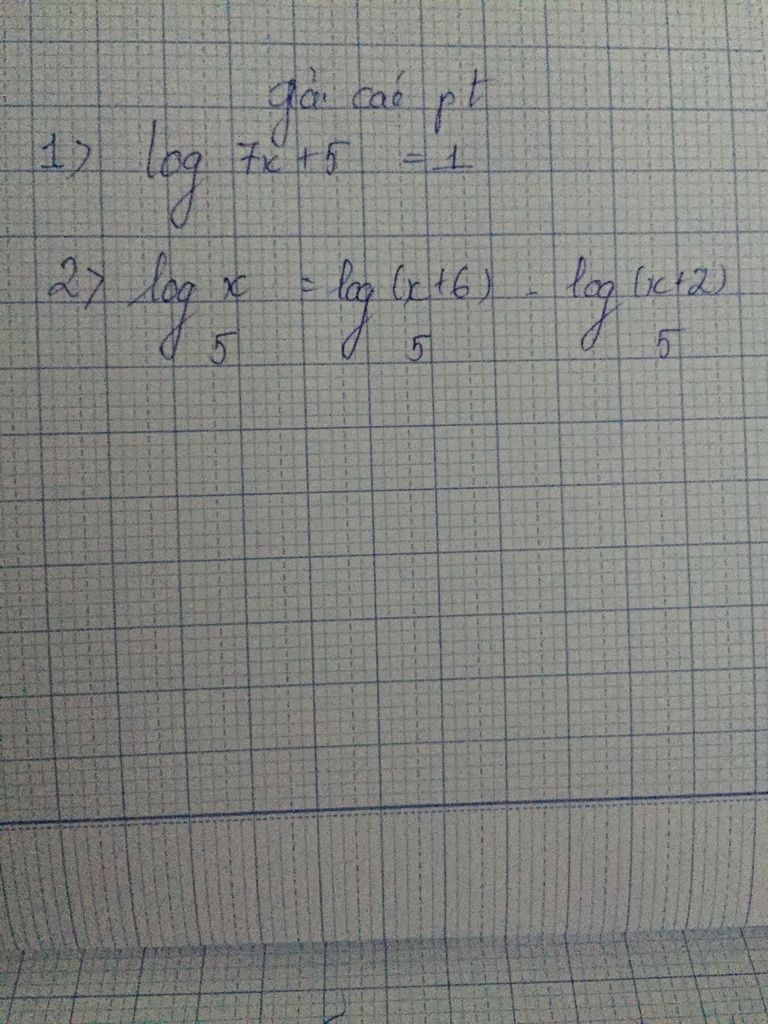 giải các pt
1> log 7x + 5 = 1
2> log x = log (x+6) - log (x+2)
5 5 5